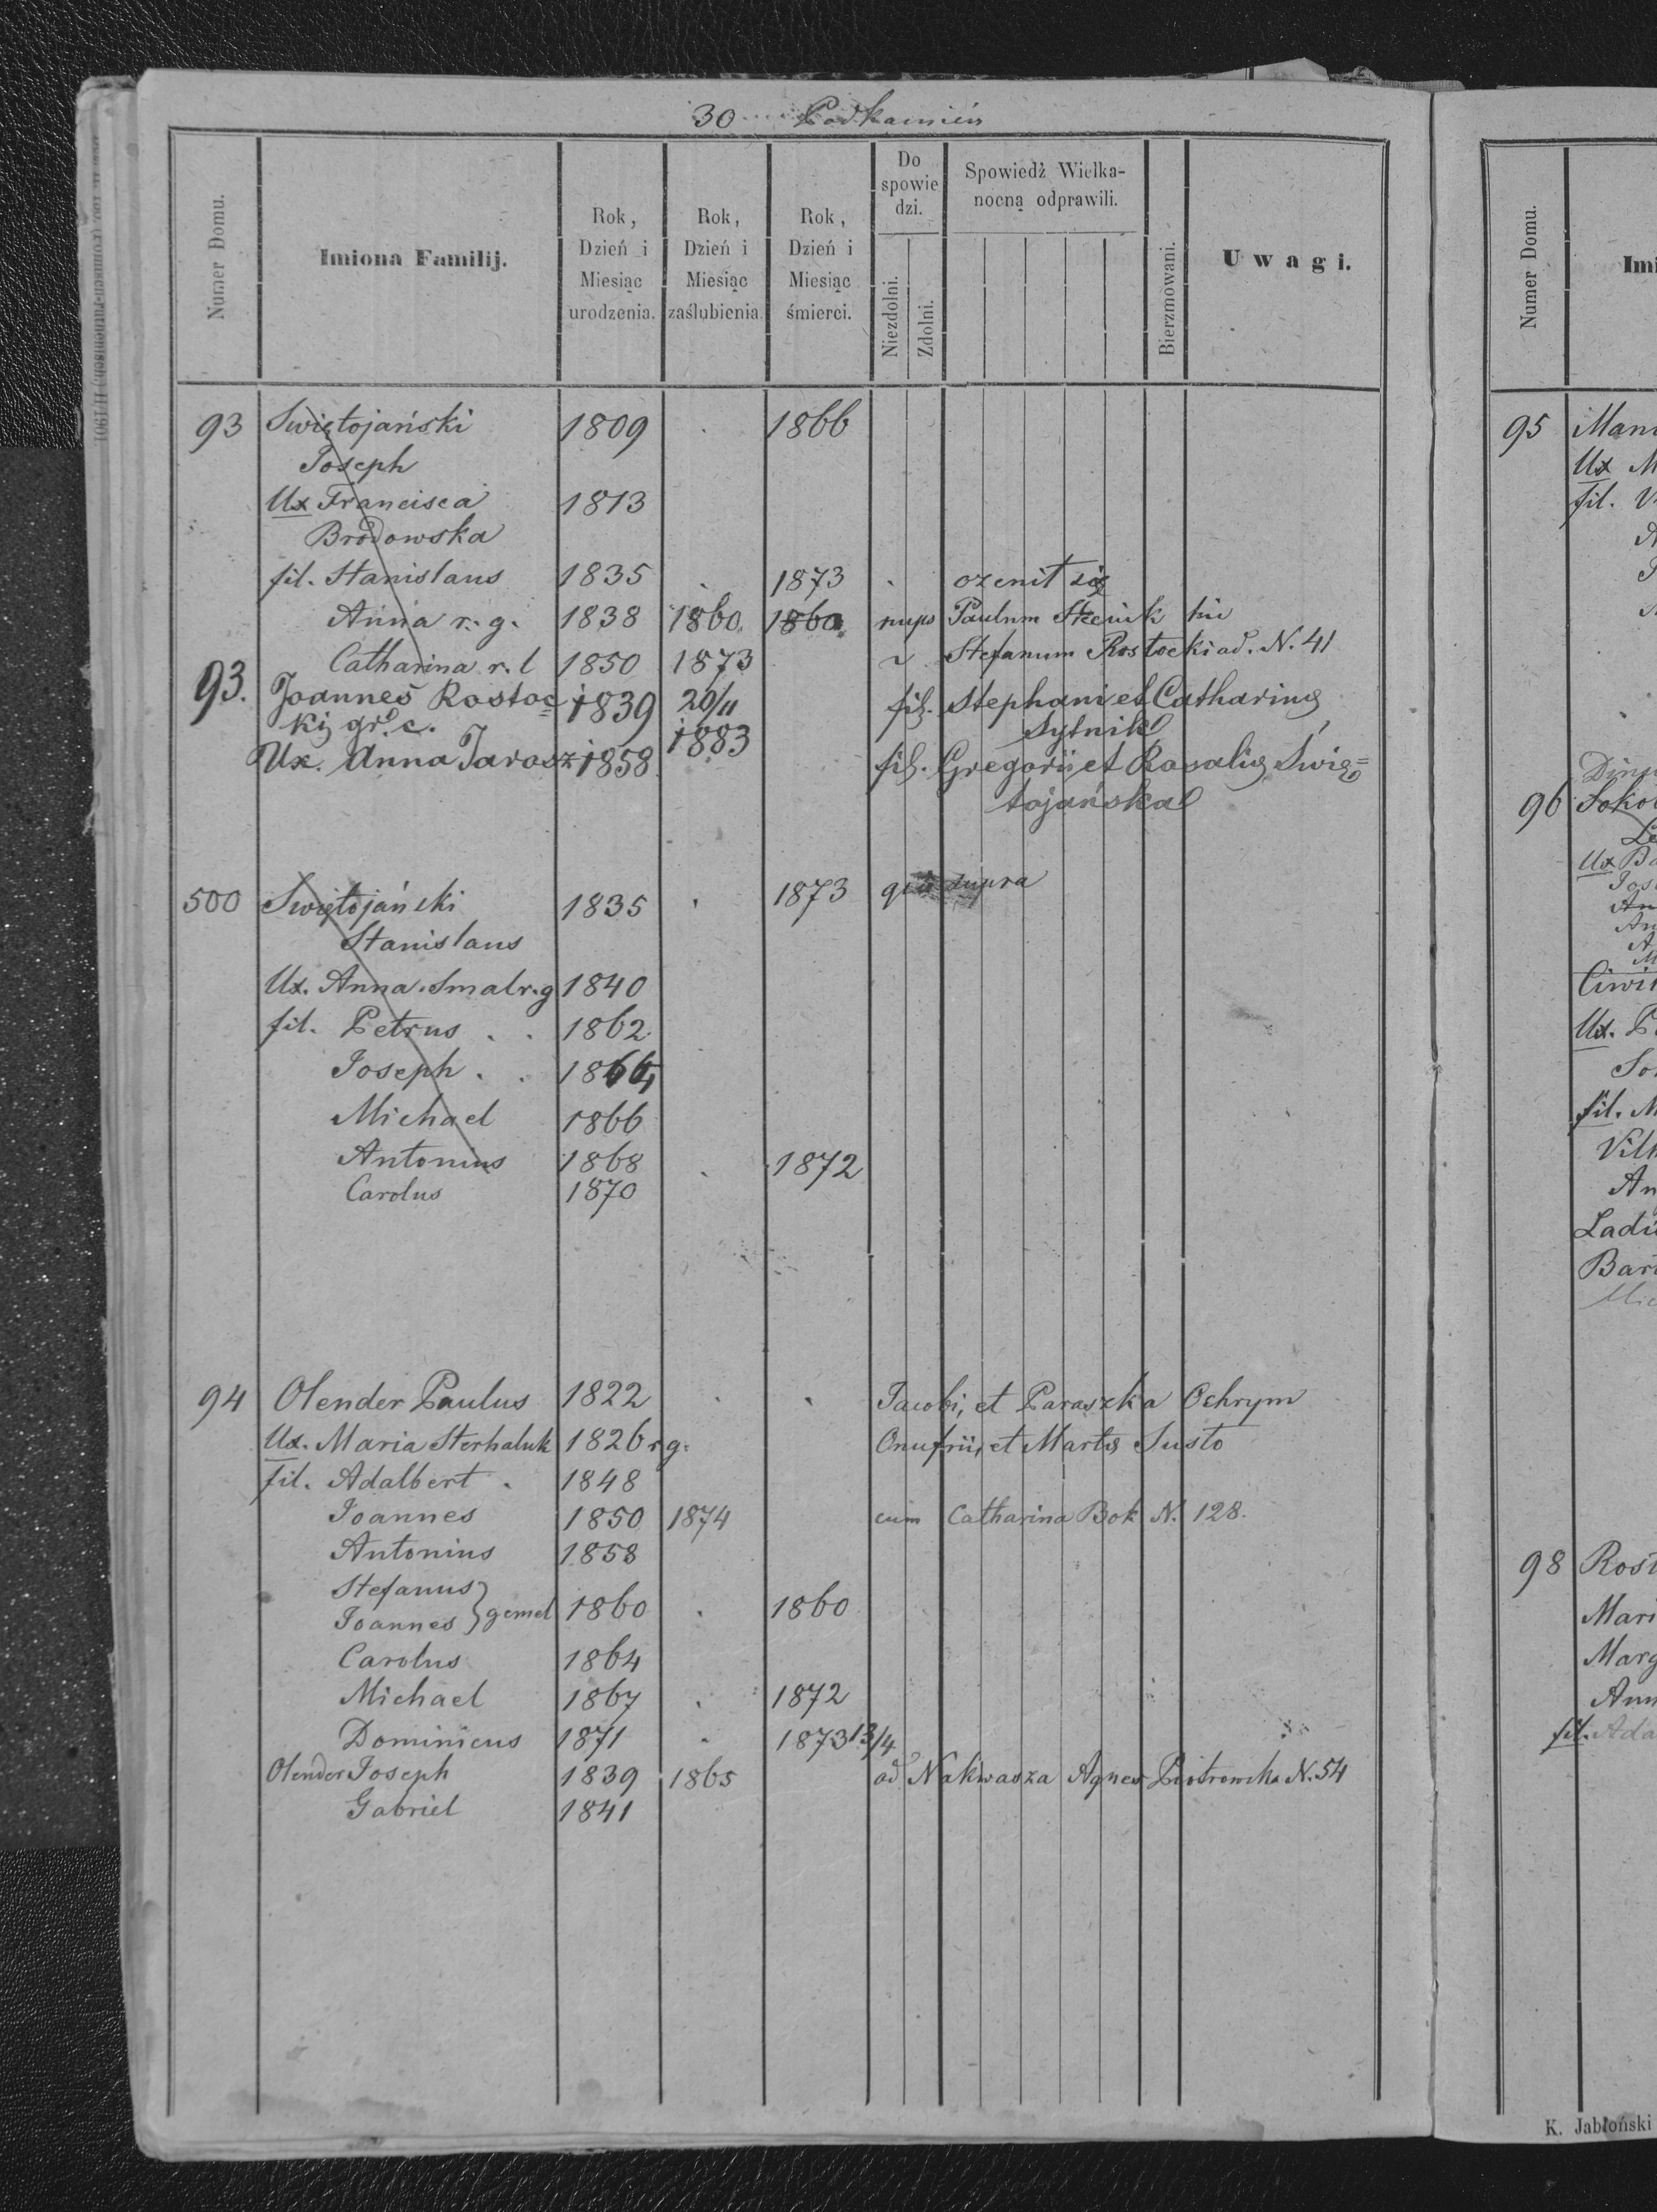 30 Podkamień
Numer Domu.
Imiona Familij.
Rok, Dzień i Miesiąc urodzenia.
Rok, Dzień i Miesiąc zaślubienia.
Rok, Dzień i Miesiąc śmierci.
Do spowie dzi.
Niezdolni.
Zdolni.
Spowiedź Wielka-
nocną odprawili.
Bierzmowani.
Uwagi.
93 Swiętojański 1809 . 1866
Joseph
Ux Francisca 1813
Brodowska
fil. Stanislaus 1835 . 1873 . ozenił się
Anna r. g. 1838 1860. 1860 nups Paulum hic
Catharina r. l 1850 1873 Stefanum Rostocki ad. N. 41
93. Joannes Rostoc 1839 20/11 fil. Stephani et Catharinę
kij gr. c. 1883 Sytnik
Ux. Anna Jarosz 1858 fil. Gregorii et Rosalię Świę=
tojańska
500 Swiętojański 1835 . 1873 supra
Stanislaus
Ux. Anna Smal r. g 1840
fil. Petrus . . 1862
Joseph . . 1864
Michael 1866
Antonius 1868 . 1872
Carolus 1870
94 Olender Paulus 1822 . . Jacobi, et Paraszka Ochrym
Ux. Maria Sterhaluk 1826 r g. Onufrii, et Martę Susto
fil. Adalbert . 1848
Joannes 1850 1874 cum Catharina Bok N. 128.
Antonius 1858
Stefanus
Joannes } gemel 1860 . 1860
Carolus 1864
Michael 1867 . 1872
Dominicus 1871 . 1873 13/4
Olender Joseph 1839 1865 ad Nakwasza Agnes Piotrowska N. 54
Gabriel 1841
Numer Domu.
Imi
95
Ux M
fil. V
96 Sokol
Ux Ba
Jos
Ux. P
fil. M
An
98 Rost
Mari
Marg
Ann
fil. Ada
K. Jabłoński